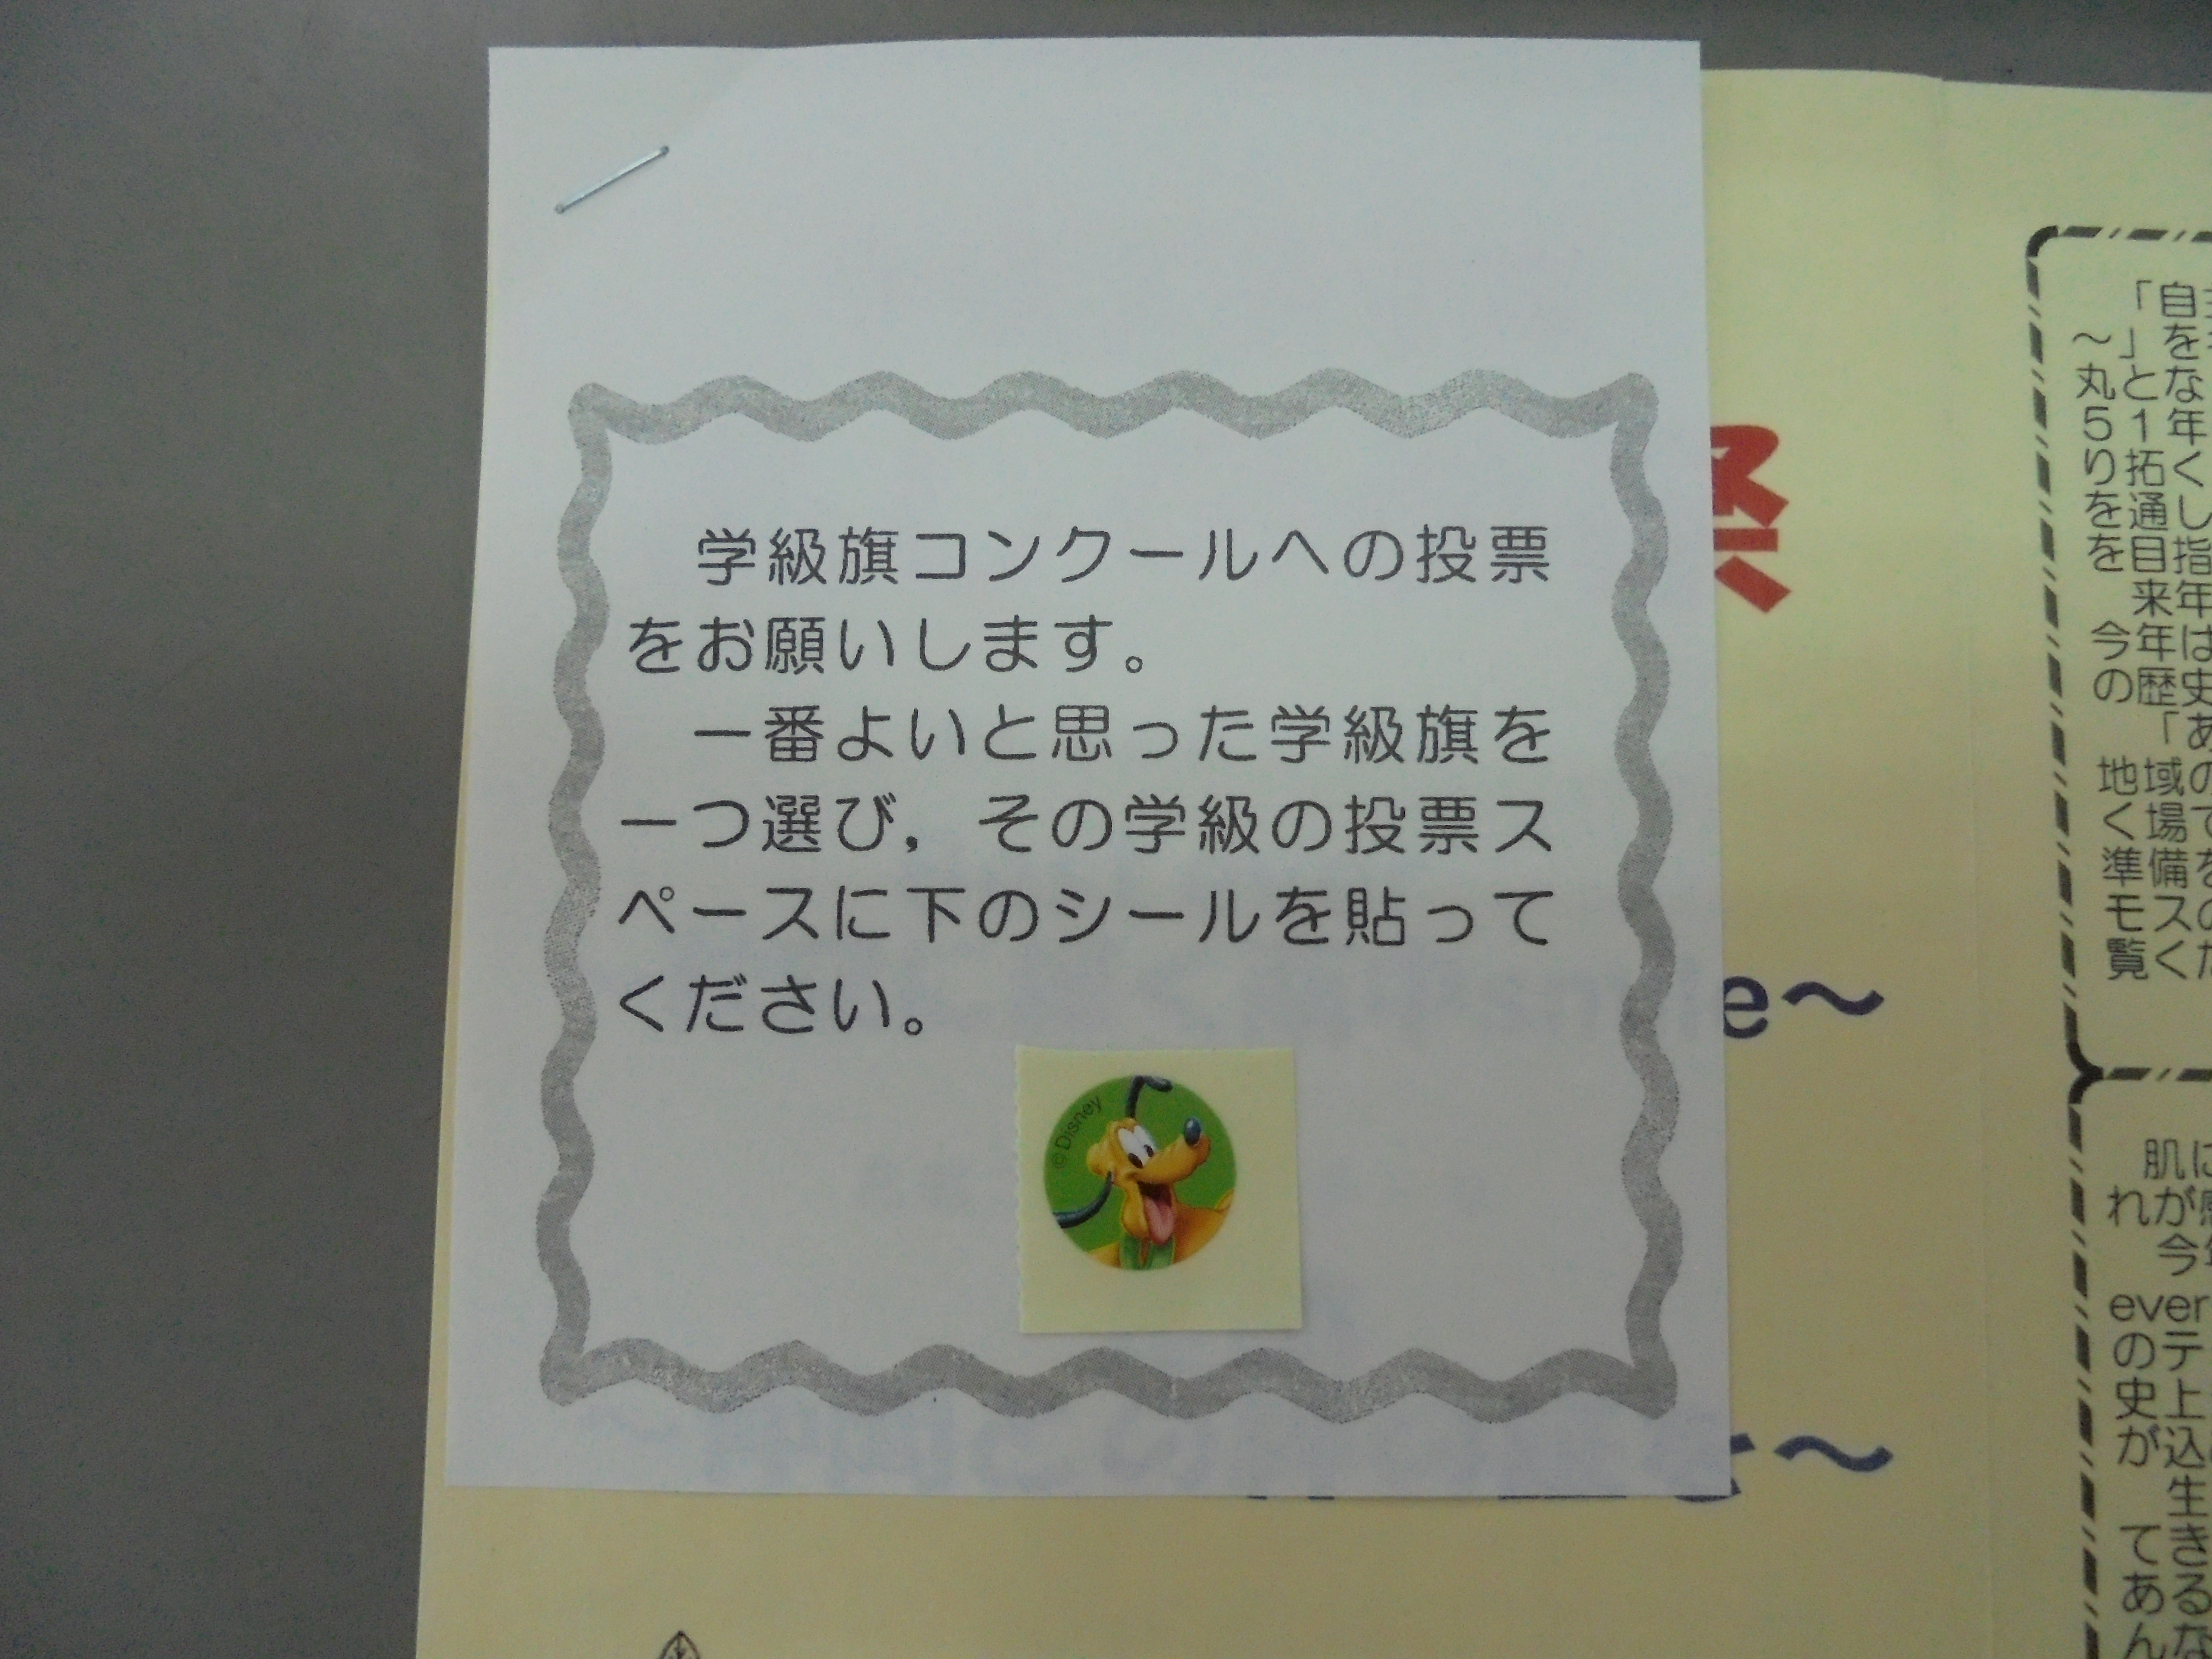 学級旗コンクールへの投票
をお願いします。
一番よいと思った学級旗を
一つ選び，その学級の投票ス
ペースに下のシールを貼って
ください。
©Disney
祭
e～
～
「自
～」を
丸とな
５１年
り拓く
を通し
を目指
来年
今年は
の歴史
「あ
地域の
く場で
準備を
モスの
覧くだ
肌に
れが感
今年
ever
のテ
史上
が込
生
てきる
あるな
ん